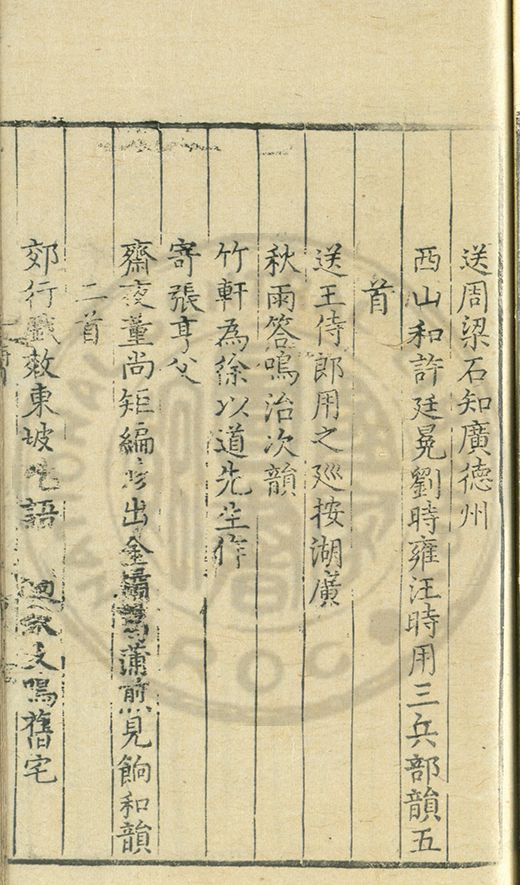 送周梁石知廣德州
西山和許廷冕劉時雍汪時用三兵部韻五
首
送王侍郎用之廵按湖廣
秋雨答鳴治次韻
竹軒為徐以道先生作
寄張亨父
齋夜董尚矩編修出金 蒲煎見餉和韻
二首
郊行戲效東坡 語 過 鳴舊宅